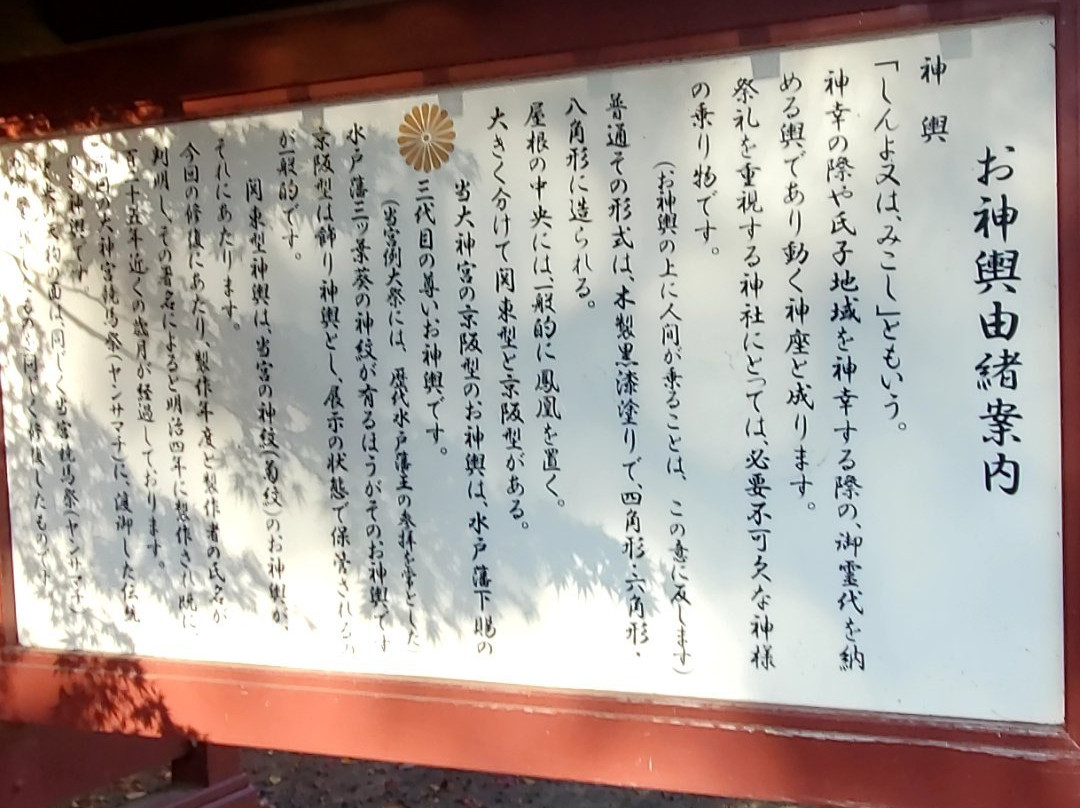 お神輿由緒案内
神輿
「しんよ又は、みこし」ともいう。
神幸の際や氏子地域を神幸する際の、御霊代を納
める輿であり動く神座と成ります。
祭礼を重視する神社にとっては、必要不可欠な神様
の乗り物です。
(お神輿の上に人間が乗ることは、この意に反します)
普通その形式は、木製黒漆塗りで、四角形・六角形・
八角形に造られる。
屋根の中央には、一般的に鳳凰を置く。
大きく分けて関東型と京阪型がある。
当大神宮の京阪型のお神輿は、水戸藩下賜の
三代目の尊いお神輿です。
(当宮例大祭には、歴代水戸藩主の参拝を常とした
水戸藩三ッ葉葵の神紋が有るほうがそのお神輿です
京阪型は飾り神輿とし、展示の状態で保管される
が一般的です。
関東型神輿は、当宮の神紋(菊紋)のお神輿が、
それにあたります。
今回の修復にあたり、製作年度と製作者の氏名が
判明し、その署名によると明治四年に製作され既に、
百三十五年近くの歳月が経過しております。
前回の大神宮競馬祭(ヤンサマチ)に、渡御した伝統
お神輿です。
の面は、同じく当宮競馬祭(ヤンサマチ)
同じく修復したものです